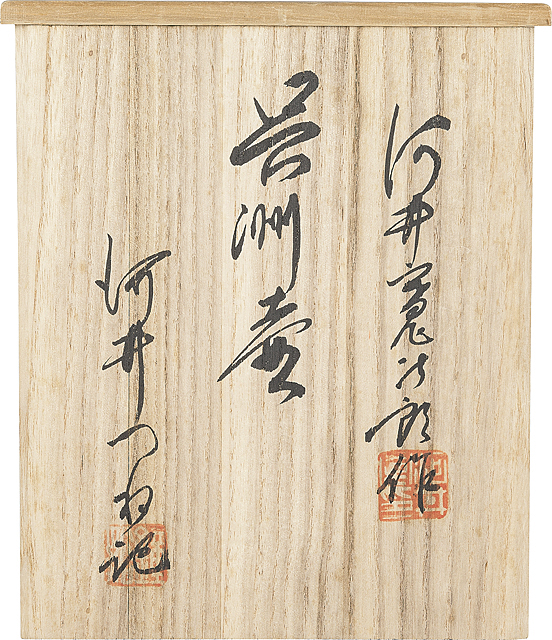 河井寛次郎作
呉洲壷
河井つね記